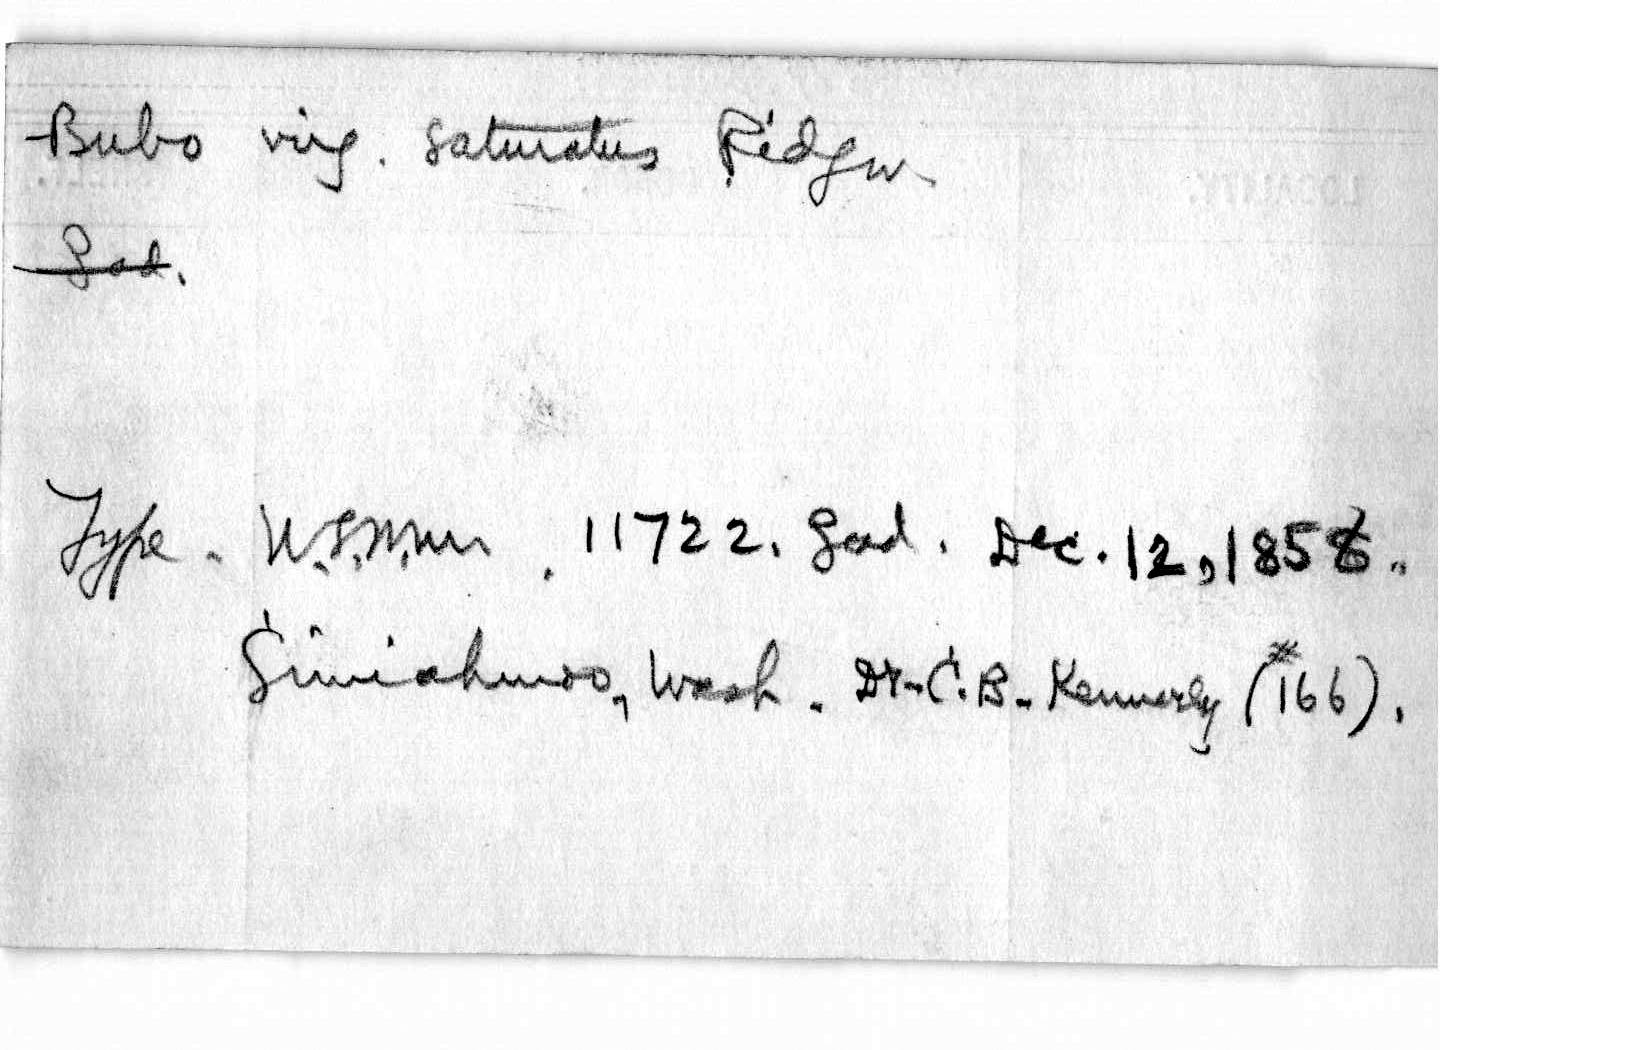 Bubo virg. saturatus Ridgw.
LOCALITY.
Type. U.S.N.Mus. 11722. Dec. 12, 1858.
Simiahmoo, Wash. Dr. C. B. Kennerly (#166).